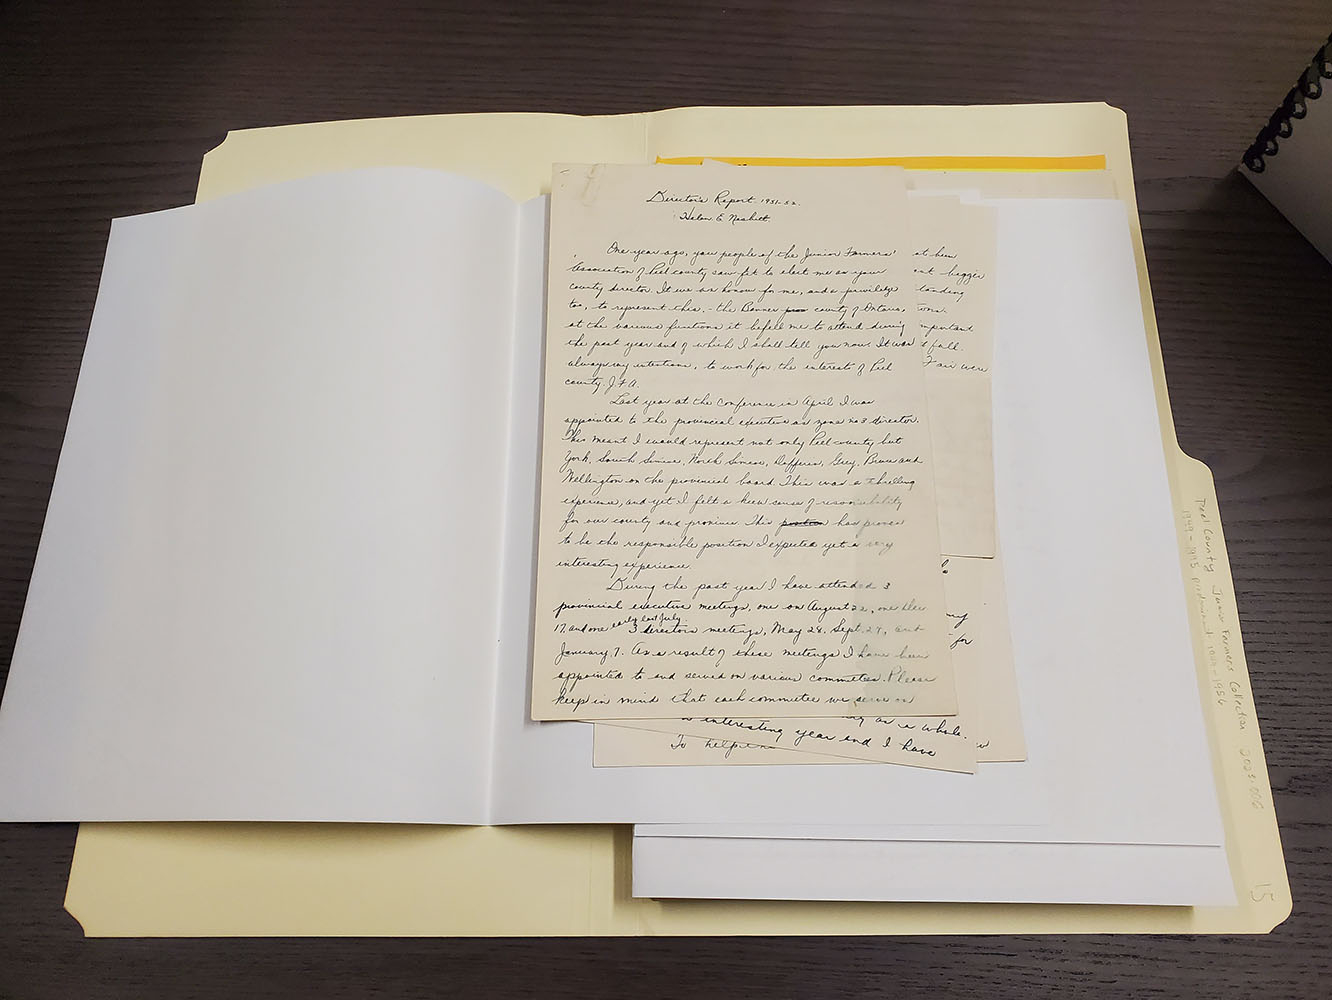 Director's Report 1951-52.
Helen E. Nesbitt
One year ago, you people of the Junior Farmers'
Association of Peel county saw fit to elect me as your
county director. It was an honour for me, and a privilege
too, to represent this, - the Banner county of Ontario,
at the various functions it befell me to attend during
the past year and of which I shall tell you now. It was
always my intentions, to work for the interests of Peel
county J.F.A.
Last year at the Conference in April I was
appointed to the provincial executive as zone no 3 director.
This meant I would represent not only Peel county but
York, South Simcoe, North Simcoe, Dufferin, Grey, Bruce and
Wellington on the provincial board. This was a thrilling
experience, and yet I felt a keen sense of responsibility
for our county and province. This position has proved
to be the responsible position I expected yet a very
interesting experience.
During the past year I have attended 3
provincial executive meetings, one on August 22, one
17, and one early last July 3 directors meetings, May 28, Sept. 27, and
January 7. As a result of these meetings I have been
appointed to and served on various committees. Please
keep in mind that each committee we serve on
bigger
important
fall.
Fair were
for
as a whole.
interesting year and I have
To help
Peel County Junior Farmers Collection
1949-1956
15